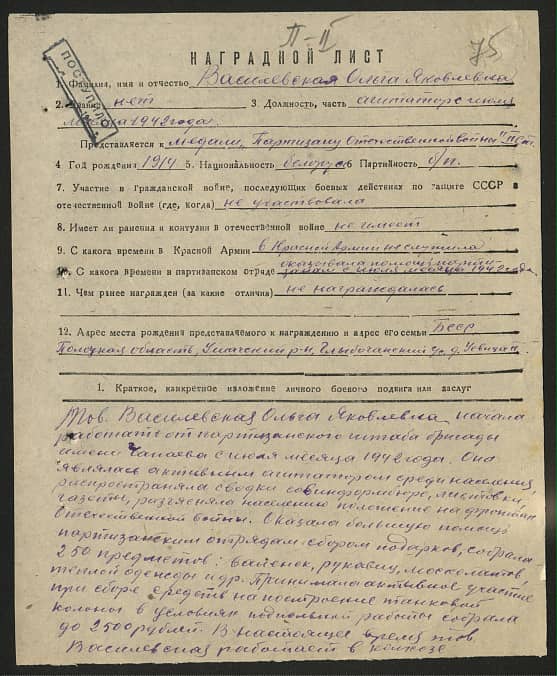 П-II
75
ПОСТУПИЛО
НАГРАДНОЙ ЛИСТ
1. Фамилия, имя и отчество Василевская Ольга Яковлевна
2. Звание нет 3. Должность, часть агитатор с июля
месяца 1942 года
Представляется к медали „Партизану Отечественной войны" II ст.
4 Год рождения 1914 5. Национальность белорус 6 Партийность б/п.
7. Участие в Гражданской войне, последующих боевых действиях по защите СССР в
отечественной войне (где, когда) не участвовала
8. Имеет ли ранения и контузии в отечественной войне не имеет
9. С какого времени в Красной Армии в Красной Армии не служила
оказывала помощь парти-
10. С какого времени в партизанском отряде занам с июля месяца 1942 года.
11. Чем ранее награжден (за какие отличия) не награждалась
12. Адрес места рождения представляемого к награждению и адрес его семьи БССР
Полоцкая область, Ушачский р-н, Глыбочанский с/с, д.
I. Краткое, конкретное изложение личного боевого подвига или заслуг
Тов. Василевская Ольга Яковлевна начала
работать от партизанского штаба бригады
имени Чапаева с июля месяца 1942 года. Она
являлась активным агитатором среди населения,
распространяла сводки совинформбюро, листовки,
газеты, разъясняла населению положение на фронтах
Отечественной войны. Оказала большую помощь
партизанским отрядам сбором подарков, собрала
250 предметов: валенок, рукавиц, маскхалатов,
теплой одежды и др. Принимала активное участие
при сборе средств на построение танковой
колоны в условиях подпольной работы собрала
до 2500 рублей. В настоящее время тов.
Василевская работает в колхозе